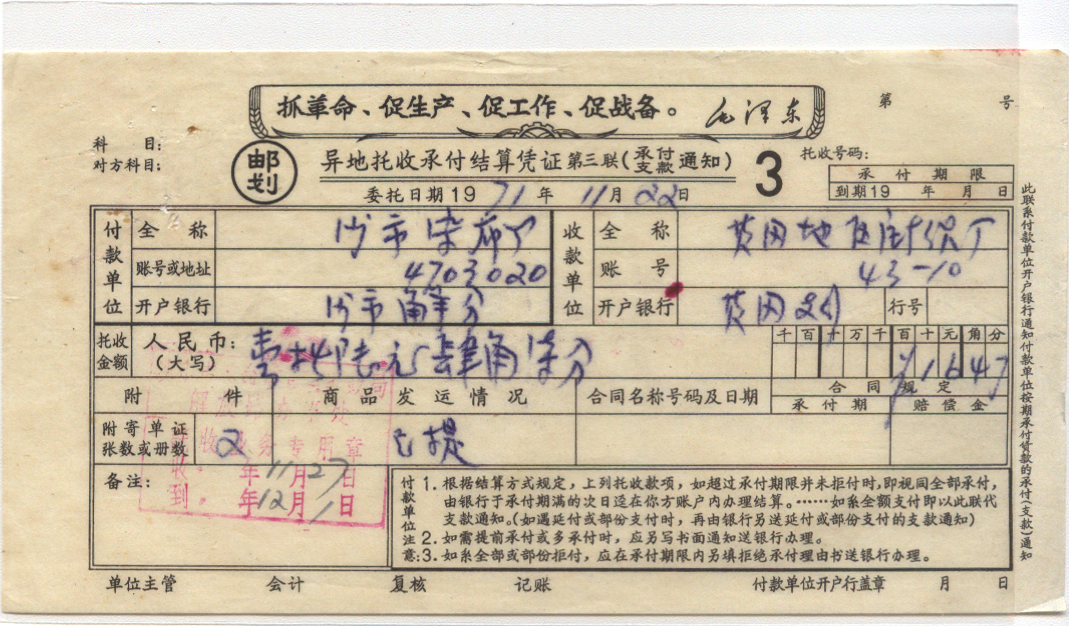 抓革命、促生产、促工作、促战备。 毛泽东
第 号
科 目:
对方科目:
邮划
异地托收承付结算凭证 第三联(承付支款通知)
3
托收号码:
承付期限
到期19 年 月 日
委托日期1971年11月22日
付款单位
全 称
沙市床布厂
账号或地址
4703020
开户银行
沙市
收款单位
全 称
黄冈地区针织厂
账 号
43-10
开户银行
黄冈
行号
托收金额
人民币:(大写)
壹拾陆元肆角柒分
千百十万千百十元角分
¥1647
附 件
商品发运情况
合同名称号码及日期
合同规定
承付期
赔偿金
附寄单证张数或册数
2
已提
备注:
收到
年11月27日
年12月1日
付款单位注意:
1. 根据结算方式规定，上列托收款项，如超过承付期限并未拒付时，即视同全部承付，
由银行于承付期满的次日迳在你方账户内办理结算。……如系全额支付即以此联代
支款通知。(如遇延付或部份支付时，再由银行另送延付或部份支付的支款通知)
2. 如需提前承付或多承付时，应另写书面通知送银行办理。
3. 如系全部或部份拒付，应在承付期限内另填拒绝承付理由书送银行办理。
此联系付款单位开户银行通知付款单位按期承付货款的承付(支款)通知
单位主管 会计 复核 记账 付款单位开户行盖章 月 日